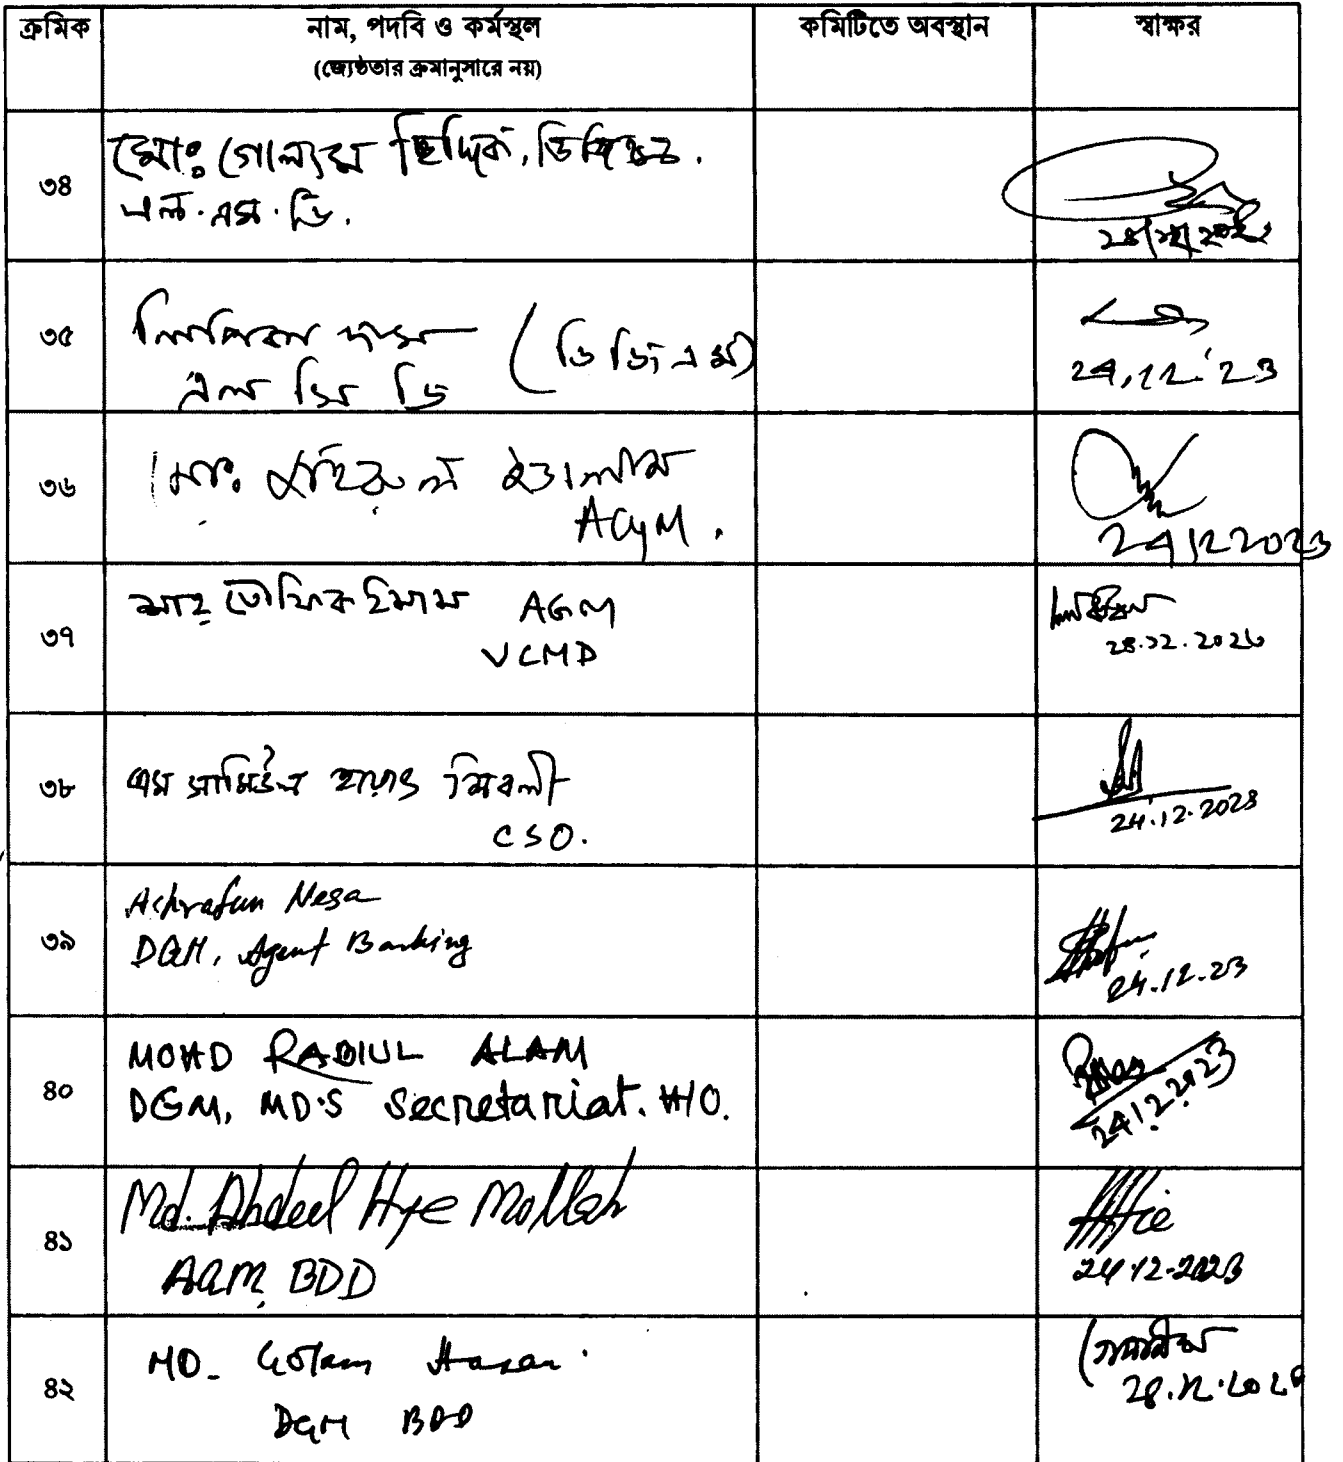 ক্রমিক নাম, পদবি ও কর্মস্থল কমিটিতে অবস্থান স্বাক্ষর
(জ্যেষ্ঠতার ক্রমানুসারে নয়)
৩৪ মোঃ গোলাম ছিদ্দিক, ডিজিএম.
এল.এম.ডি.
৩৫ লিপিকা দাস (ডিজিএম)
এল সি ডি
24.12.'23
৩৬ মোঃ জহিরুল ইসলাম
AGM.
24122023
৩৭ শাহ তৌফিক ইমাম AGM
VCMD
২৪.১২.২০২৩
৩৮ এস সামিউল হায়াৎ শিবলী
CSO.
24.12.2023
৩৯ Achrafun Nesa
DGM, Agent Banking
24.12.23
৪০ MOHD RABIUL ALAM
DGM, MD'S Secretariat. H/O.
24.12.2023
৪১ Md. Abdul Hye Mollah
AGM, BDD
24-12-2023
৪২ MD. Golam Hasan.
DGM BDD